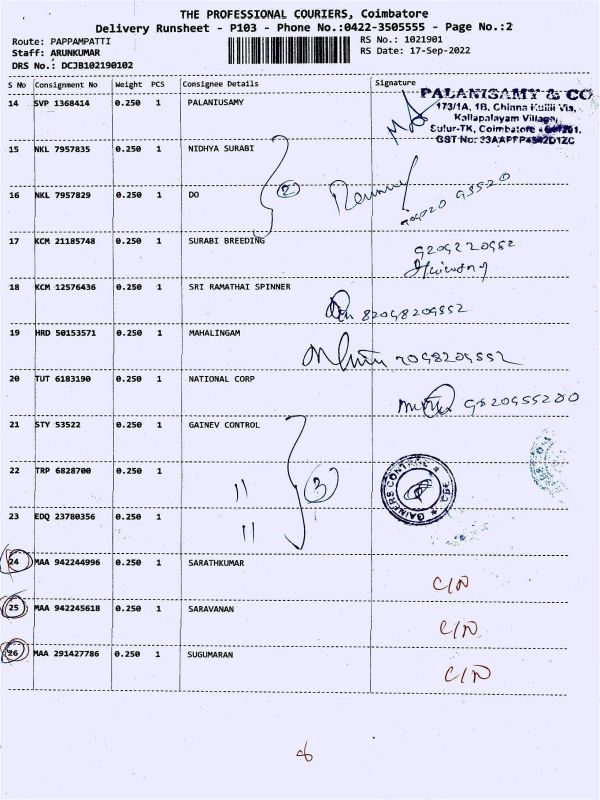 THE PROFESSIONAL COURIERS, Coimbatore
Delivery Runsheet - P103 - Phone No.:0422-3505555 - Page No.:2
Route: PAPPAMPATTI
RS No.: 1021901
Staff: ARUNKUMAR
RS Date: 17-Sep-2022
DRS No.: DCJB102190102
S No Consignment No Weight PCS Consignee Details Signature
PALANISAMY & CO
173/1A, 1B, Chinna Kuilli Via,
Kallapalayam Village,
Sulur-TK, Coimbatore
GST No:
14 SVP 1368414 0.250 1 PALANIUSAMY
15 NKL 7957835 0.250 1 NIDHYA SURABI
2
16 NKL 7957829 0.250 1 DO
17 KCM 21185748 0.250 1 SURABI BREEDING
18 KCM 12576436 0.250 1 SRI RAMATHAI SPINNER
19 HRD 50153571 0.250 1 MAHALINGAM
20 TUT 6183190 0.250 1 NATIONAL CORP
21 STY 53522 0.250 1 GAINEV CONTROL
22 TRP 6828700 0.250 1 " 3
GAINERS CONTROL * CBE *
23 EDQ 23780356 0.250 1 "
24 MAA 942244996 0.250 1 SARATHKUMAR C/N
25 MAA 942245618 0.250 1 SARAVANAN C/N
26 MAA 291427786 0.250 1 SUGUMARAN C/N